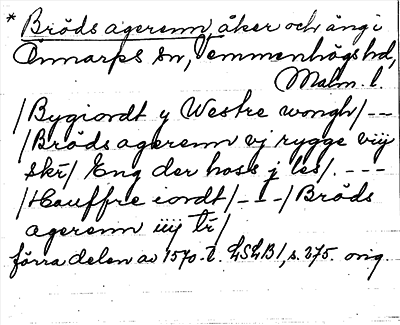 * Bröds agerenn åker och äng i
Önnarps sn, Vemmenhögs hd,
Malm. l.
/Bygiordt y Westre wongh/ - -
/Bröds agerenn vj rygge viij
skr/ Eng der hoss j les/. - - -
/Hauffre iordt/ - - - /Bröds
agerenn iiij tr/
förra delen av 1570-t. LSLB1, s. 275. orig.